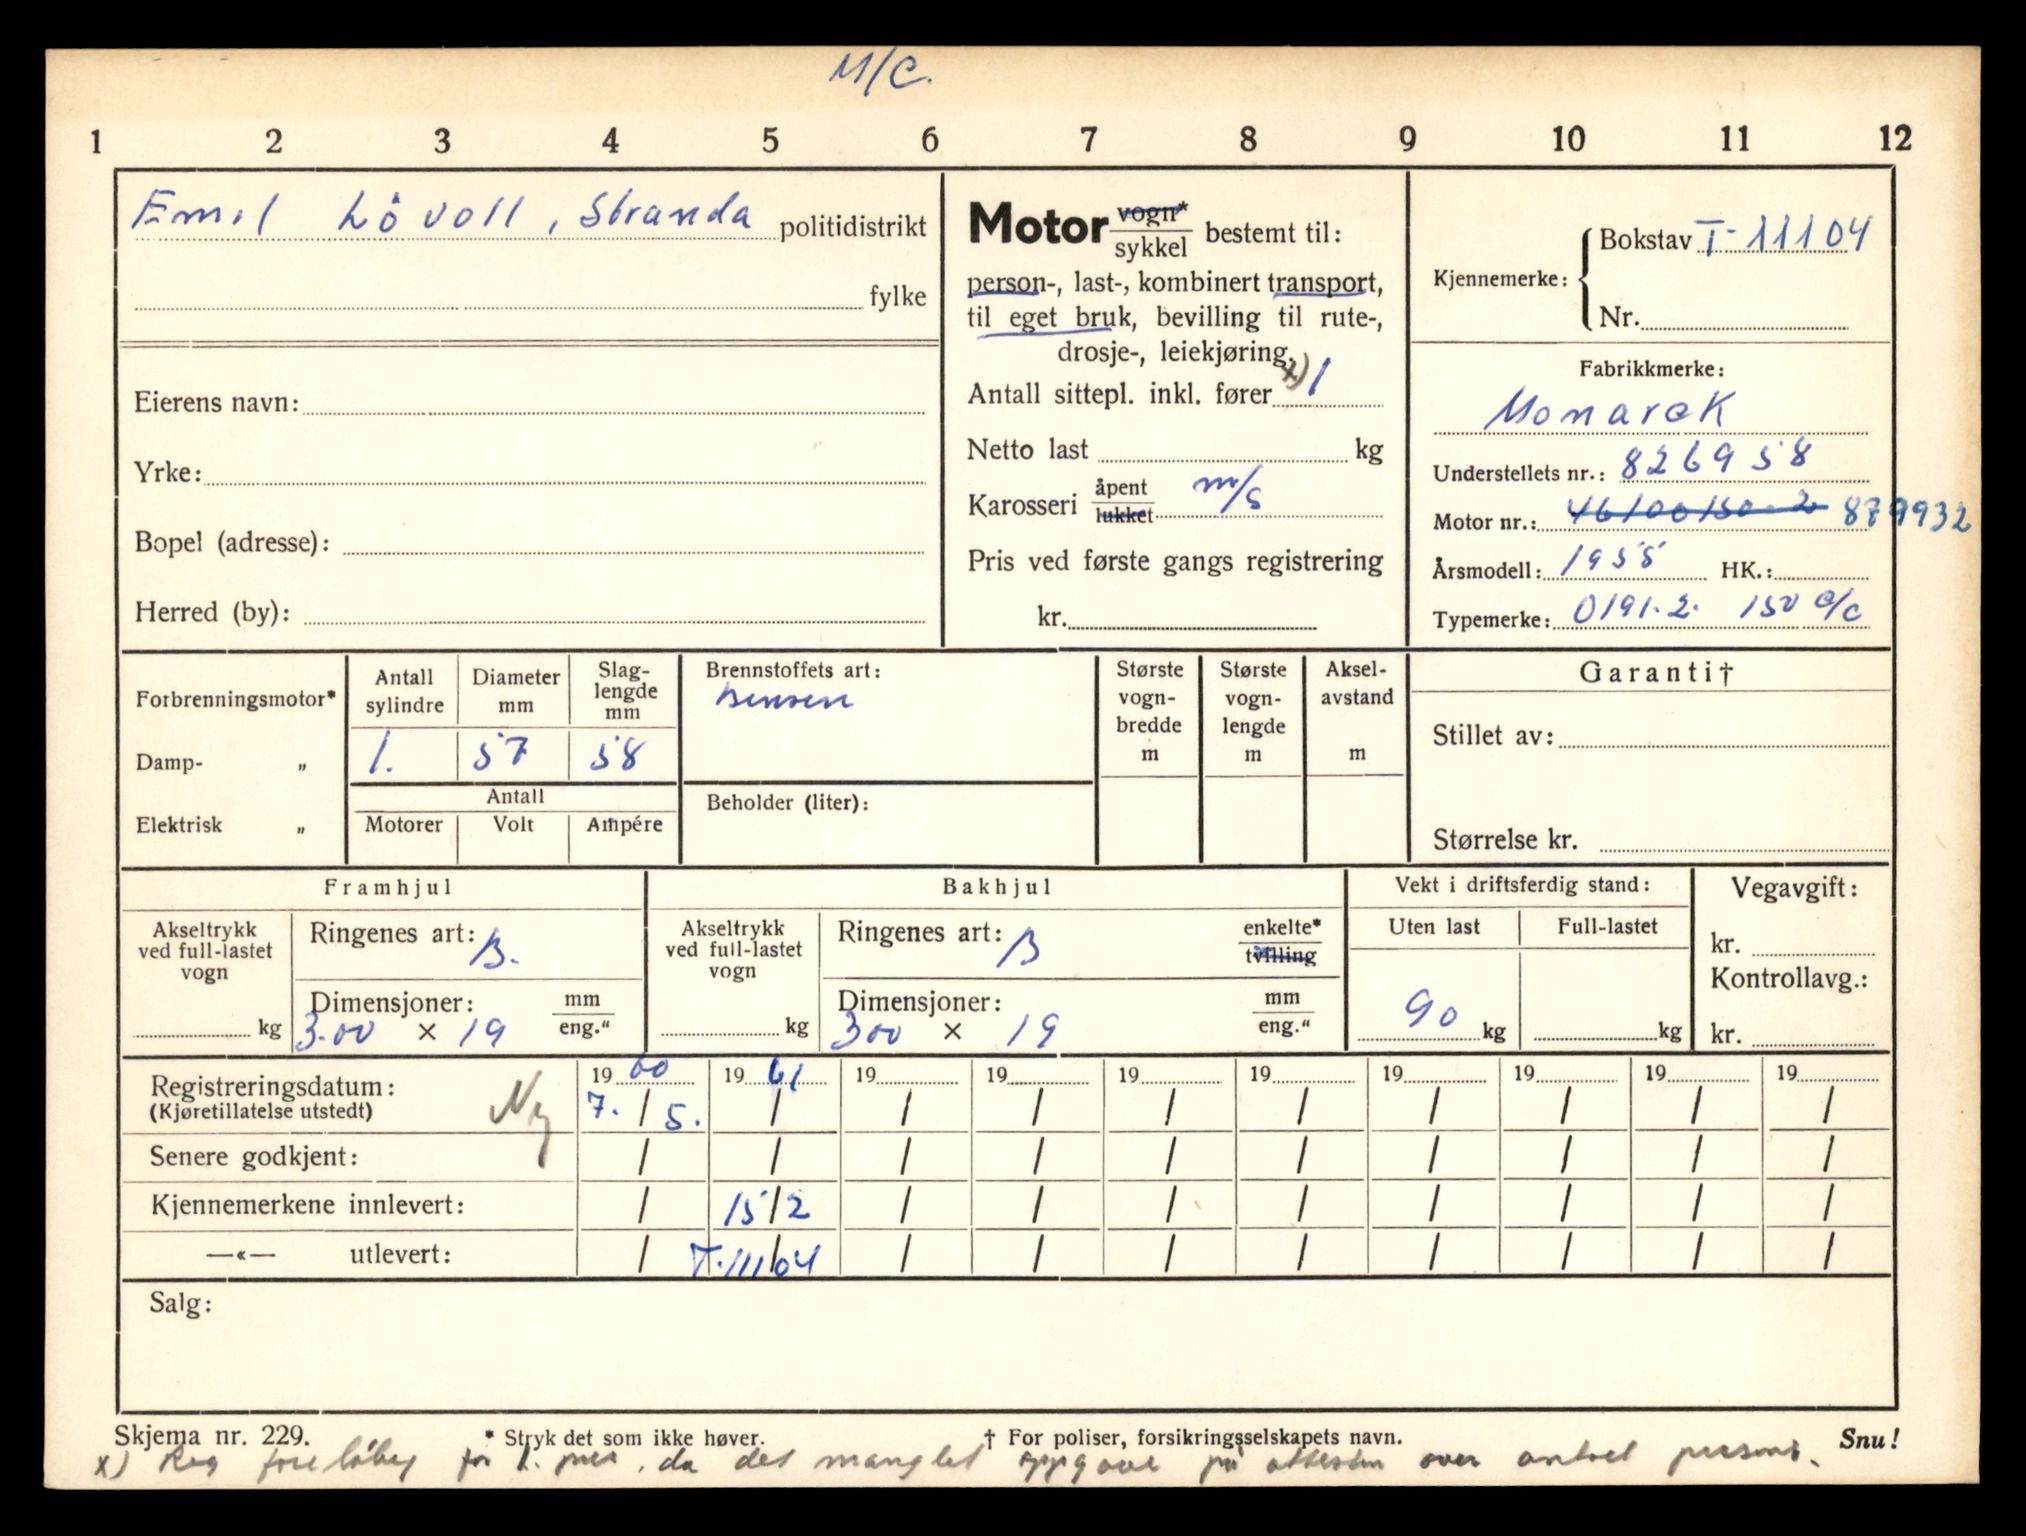 M/C.
1 2 3 4 5 6 7 8 9 10 11 12
Emil Lövoll, Stranda politidistrikt
fylke
Eierens navn:
Yrke:
Bopel (adresse):
Herred (by):
Motor vogn* / sykkel bestemt til:
person-, last-, kombinert transport,
til eget bruk, bevilling til rute-,
drosje-, leiekjøring.
Antall sittepl. inkl. fører x) 1
Netto last kg
Karosseri åpent / lukket m/s
Pris ved første gangs registrering
kr.
Kjennemerke: Bokstav T-11104
Nr.
Fabrikkmerke:
Monark
Understellets nr.: 826958
Motor nr.: 46100150-2 879932
Årsmodell: 1955 HK.:
Typemerke: 0191.2. 150 c/c
Forbrenningsmotor*
Damp- „
Elektrisk „
Antall sylindre
Diameter mm
Slag-lengde mm
1. 57 58
Antall
Motorer Volt Ampére
Brennstoffets art:
Bensin
Beholder (liter):
Største vogn-bredde m
Største vogn-lengde m
Aksel-avstand m
Garanti†
Stillet av:
Størrelse kr.
Framhjul
Akseltrykk ved full-lastet vogn
kg
Ringenes art: B.
Dimensjoner: mm / eng.“
3.00 × 19
Bakhjul
Akseltrykk ved full-lastet vogn
kg
Ringenes art: B enkelte* / tvilling
Dimensjoner: mm / eng.“
300 × 19
Vekt i driftsferdig stand:
Uten last Full-lastet
90 kg kg
Vegavgift:
kr.
Kontrollavg.:
kr.
Registreringsdatum: Ny 1960 1961 19 19 19 19 19 19 19 19
(Kjøretillatelse utstedt) 7. / 5. / / / / / / / / /
Senere godkjent: / / / / / / / / / /
Kjennemerkene innlevert: / 15/2 / / / / / / / /
—«— utlevert: / T.11104 / / / / / / / /
Salg:
Skjema nr. 229. * Stryk det som ikke høver. † For poliser, forsikringsselskapets navn. Snu!
x) Reg foreløbig for 1. pers, da det manglet oppgave på attesten over antall personer.